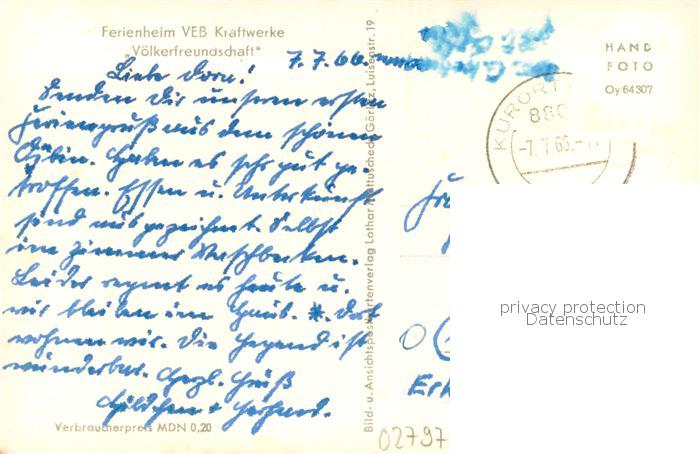 Ferienheim VEB Kraftwerke
„Völkerfreundschaft"
7.7.66.
Liebe Dora!
Senden Dir unseren ersten
Feriengruß aus dem schönen
Oybin. Haben es sehr gut ge-
troffen. Essen u. Unterkunft
sind ausgezeichnet. Selbst
im Zimmer Waschbecken.
Leider regnet es heute u.
wir bleiben im Haus. *. Dort
wohnen wir. Die Gegend ist
wunderbar. Herzl. Grüß
Gerhard.
Verbraucherpreis MDN 0,20
Bild- u. Ansichtspostkartenverlag Lothar Görlitz, Luisenstr. 19
HAND
FOTO
Oy 64307
KURORT
880
-7.7.66.-
privacy protection
Datenschutz
02797